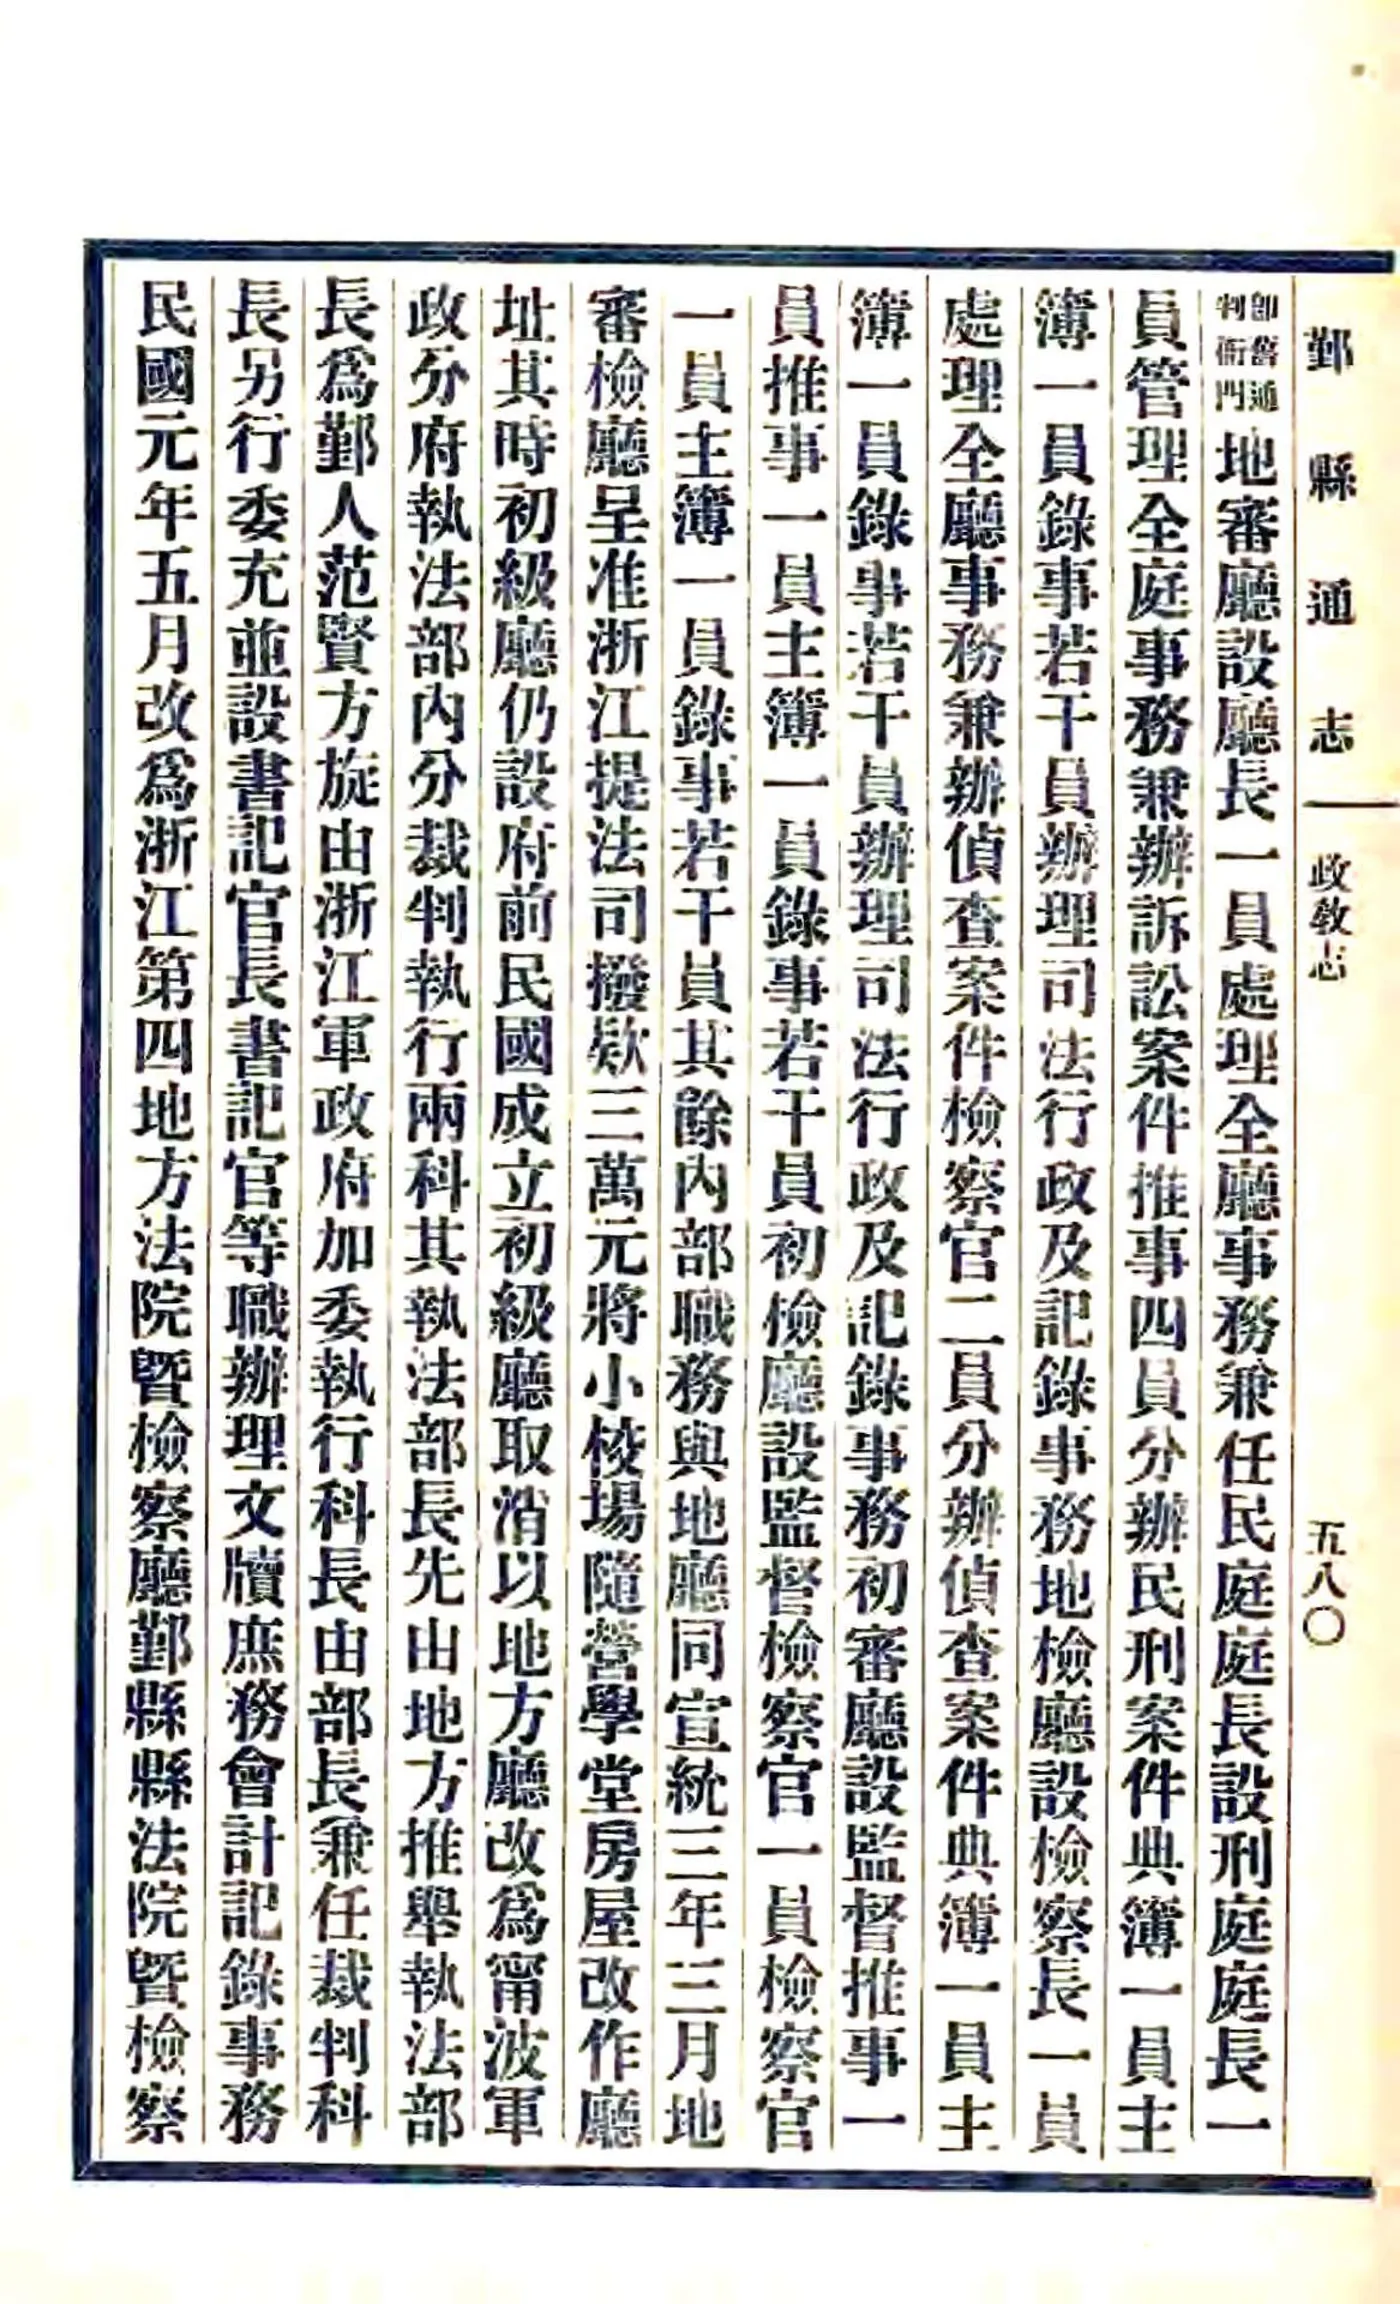 鄞縣通志 政敎志 五八〇
卽舊通
判衙門
地審廳設廳長一員處理全廳事務兼任民庭庭長設刑庭庭長一
員管理全庭事務兼辦訴訟案件推事四員分辦民刑案件典簿一員主
簿一員錄事若干員辦理司法行政及記錄事務地檢廳設檢察長一員
處理全廳事務兼辦偵查案件檢察官二員分辦偵查案件典簿一員主
簿一員錄事若干員辦理司法行政及記錄事務初審廳設監督推事一
員推事一員主簿一員錄事若干員初檢廳設監督檢察官一員檢察官
一員主簿一員錄事若干員其餘內部職務與地廳同宣統三年三月地
審檢廳呈准浙江提法司撥欵三萬元將小校場隨營學堂房屋改作廳
址其時初級廳仍設府前民國成立初級廳取消以地方廳改爲甯波軍
政分府執法部內分裁判執行兩科其執法部長先由地方推舉執法部
長爲鄞人范賢方旋由浙江軍政府加委執行科長由部長兼任裁判科
長另行委充並設書記官長書記官等職辦理文牘庶務會計記錄事務
民國元年五月改爲浙江第四地方法院曁檢察廳鄞縣縣法院曁檢察